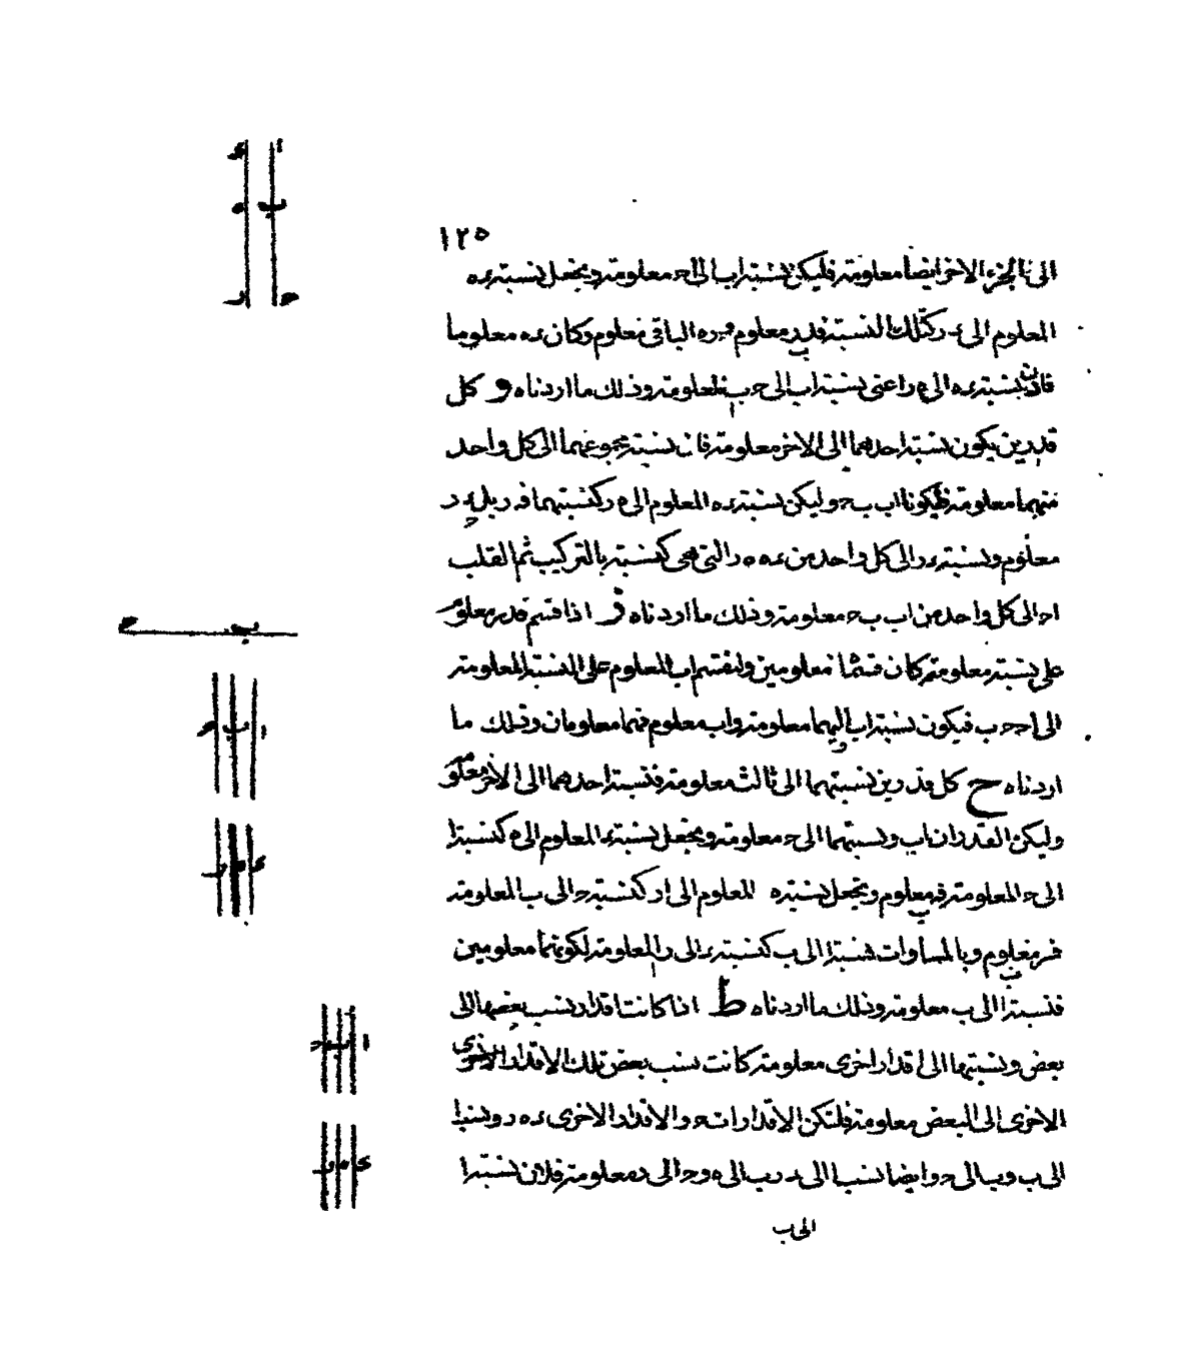 ١٢٥
الى الجزء الاخر ايضا معلومة فليكن نسبة اب الى اح معلومة ويجعل نسبة ءه
المعلوم الى ءر كتلك النسبة فدر معلوم فـ ره الباقى معلوم وكان ءه معلوما
فاذن نسبة ءه الى ه ر اعنى نسبة اب الى ح ب معلومة وذلك ما اردناه و كل
قدرين يكون نسبة احدهما الى الاخر معلومة فان نسبة مجموعهما الى كل واحد
منهما معلومة فليكونا اب ب ح وليكن نسبة ءه المعلوم الى ه ر كنسبتهما فـ ءر
معلوم ونسبة ءر الى كل واحد من ءه ه ر التى هى كنسبة بالتركيب ثم القلب
اح الى كل واحد من اب ب ح معلومة وذلك ما اردناه ز اذا قسم قدر معلوم
على نسبة معلومة كان قسماه معلومين ولنقسم اب المعلوم على النسبة المعلومة
الى اح ح ب فيكون نسبة اب اليهما معلومة واب معلوم فهما معلومان وذلك ما
اردناه ح كل قدرين نسبتهما الى ثالث معلومة فنسبة احدهما الى الاخر معلومة
وليكن القدران اب ونسبتهما الى ح معلومة ويجعل نسبة ء المعلوم الى ه كنسبة ا
الى ح المعلومة فه معلوم ويجعل نسبة ه المعلوم الى ر كنسبة ح الى ب المعلومة
فر معلوم وبالمساوات فنسبة ا الى ب كنسبة ء الى ر المعلومة لكونهما معلومين
فنسبة ا الى ب معلومة وذلك ما اردناه ط اذا كانت اقدار نسب بعضها الى
بعض ونسبتها الى اقدار اخرى معلومة كانت نسب بعض تلك الاقدار الاخرى
الاخرى الى البعض معلومة فلتكن الاقدار اب ح والاقدار الاخرى ء ه ر ونسبة ا
الى ب وب الى ح وايضا نسب ا الى ء وب الى ه وح الى ر معلومة فلان نسبة ا
الى ب
ا ء
ب ه
ح ر
ح ب
ا ب ح
ء ه ر
ا ب ح
ء ه ر